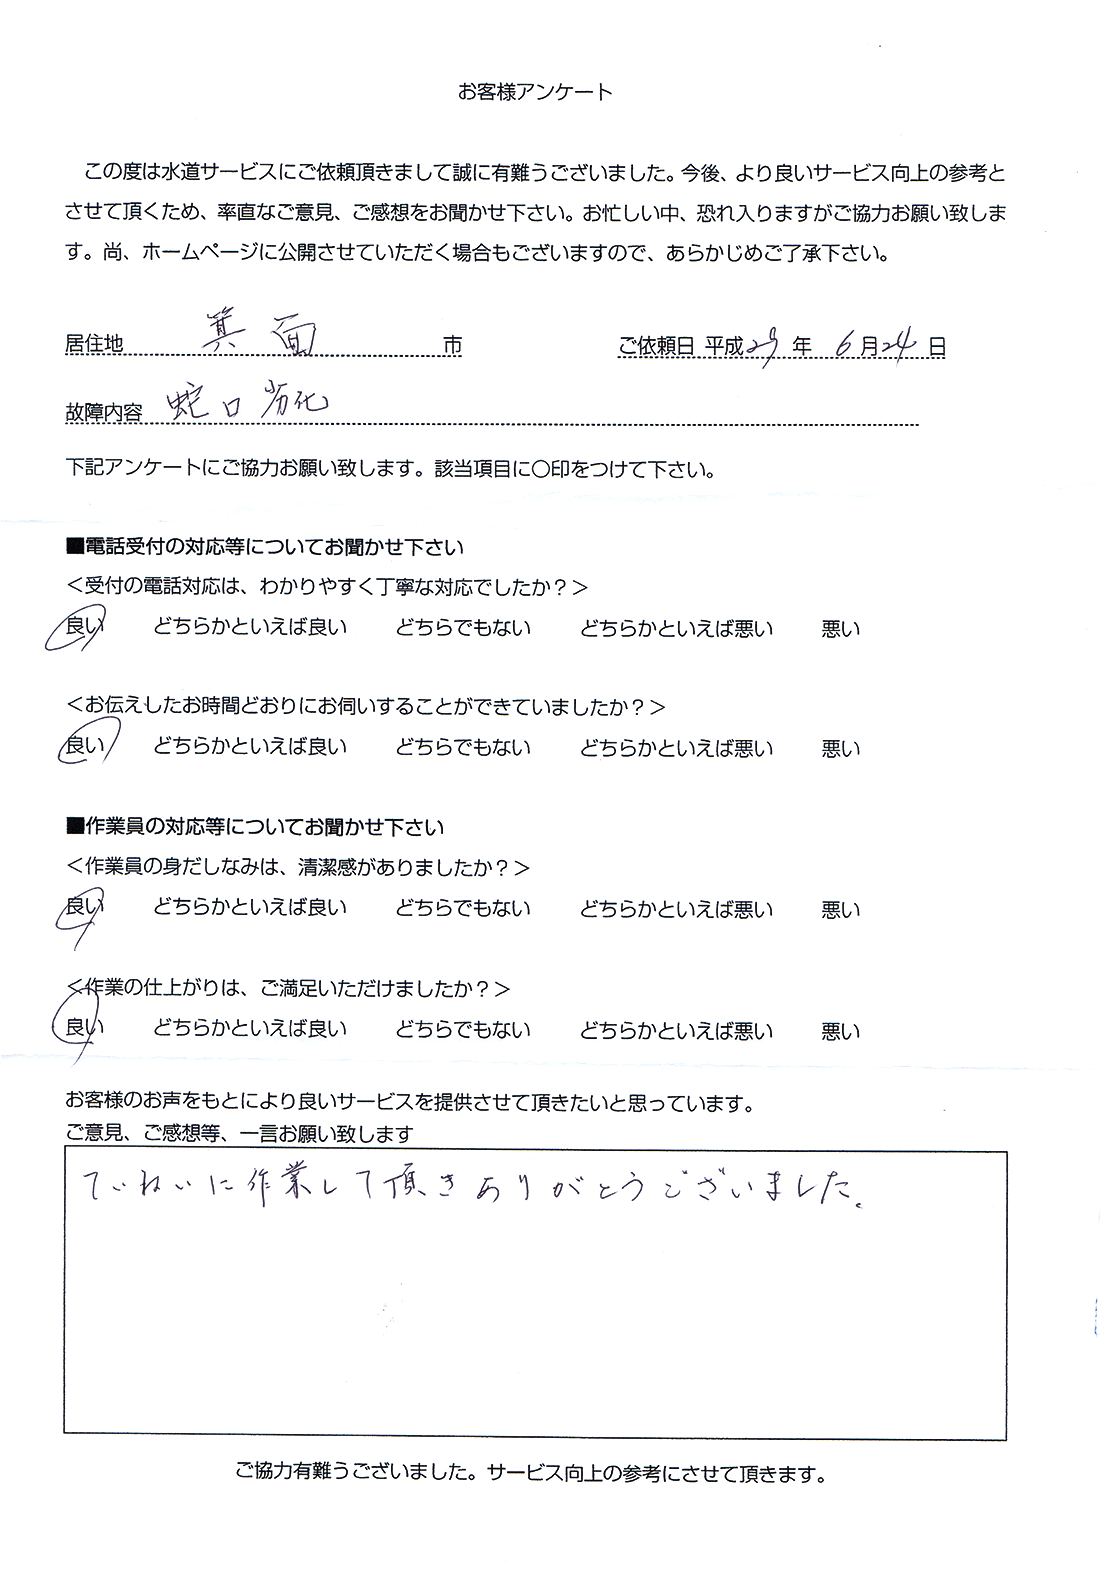 お客様アンケート
この度は水道サービスにご依頼頂きまして誠に有難うございました。今後、より良いサービス向上の参考と
させて頂くため、率直なご意見、ご感想をお聞かせ下さい。お忙しい中、恐れ入りますがご協力お願い致しま
す。尚、ホームページに公開させていただく場合もございますので、あらかじめご了承下さい。
居住地 箕面 市 ご依頼日 平成29年 6月24日
故障内容 蛇口劣化
下記アンケートにご協力お願い致します。該当項目に〇印をつけて下さい。
■電話受付の対応等についてお聞かせ下さい
＜受付の電話対応は、わかりやすく丁寧な対応でしたか？＞
良い どちらかといえば良い どちらでもない どちらかといえば悪い 悪い
＜お伝えしたお時間どおりにお伺いすることができていましたか？＞
良い どちらかといえば良い どちらでもない どちらかといえば悪い 悪い
■作業員の対応等についてお聞かせ下さい
＜作業員の身だしなみは、清潔感がありましたか？＞
良い どちらかといえば良い どちらでもない どちらかといえば悪い 悪い
＜作業の仕上がりは、ご満足いただけましたか？＞
良い どちらかといえば良い どちらでもない どちらかといえば悪い 悪い
お客様のお声をもとにより良いサービスを提供させて頂きたいと思っています。
ご意見、ご感想等、一言お願い致します
ていねいに作業して頂きありがとうございました。
ご協力有難うございました。サービス向上の参考にさせて頂きます。